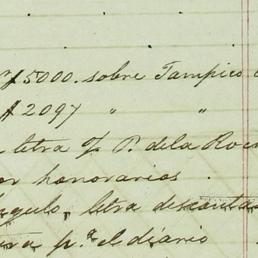 $5000. sobre Tampico
$2097 " "
letra P. de la
honorarios.
letra descontada
pa. el diario